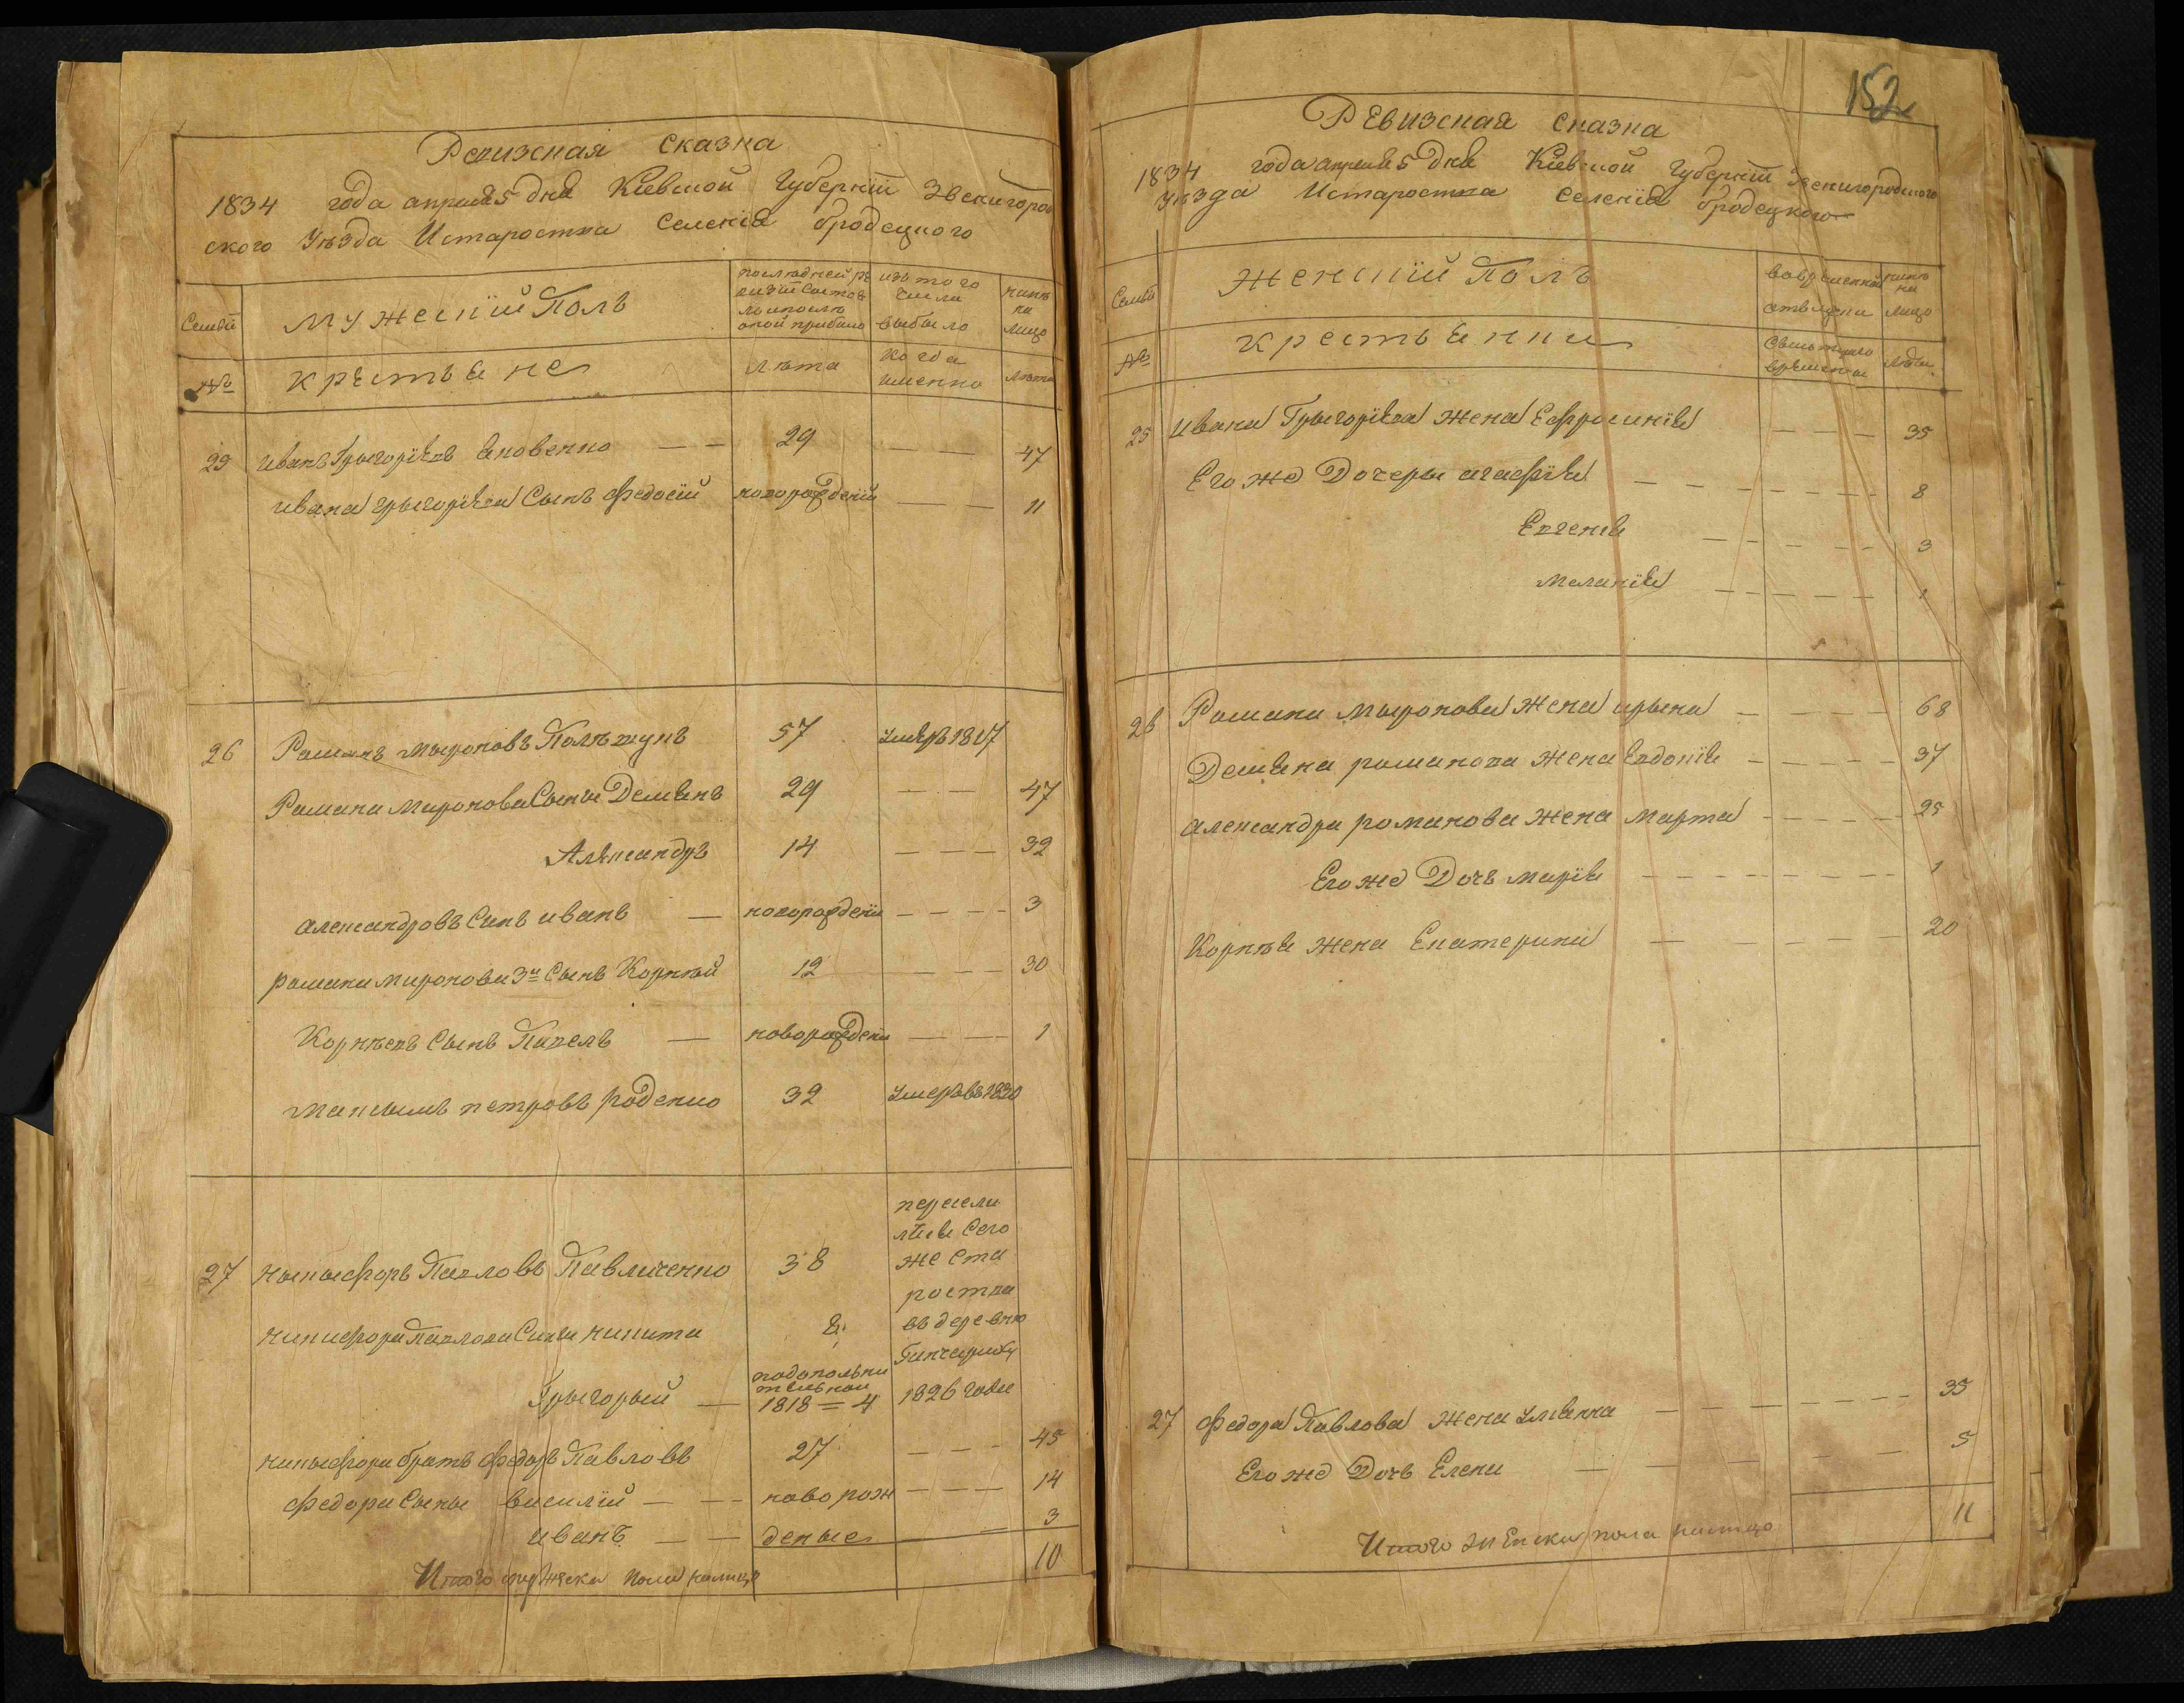 Ревизская сказка
1834 года апреля 5 дня Киевской Губернїи Звенигород
ского Уезда Истароства Селенїя бродецкого
Семьи
Мужескїй Полъ
последней ре
визїи состоя
ло и после
оной прибыло
изъ того
числа
выбыло
ныне
на
лицо
№
крестьяне
лета
когда
именно
лета
25 иванъ Грыгорїевъ Яковенко — — 29 — — 47
ивана грыгорїева Сынъ Федосїй новорожденїй — — 11
26 Романъ мыроновъ 57 умеръ 1817
Романа миронова Сыны Демьянъ 29 — — 47
Александръ 14 — — — 32
александровъ Сынъ иванъ — новорожденїй — — — — 3
романа миронова 3й Сынъ Корней 12 — — — 30
Корнеевъ Сынъ Павелъ — новорождены — — — 1
максымъ петровъ роденко 32 умеръ въ 1830
27 ныкыфоръ Павловъ Павличенко 38
никифора Павлова Сыны никита 8
Грыгорый —
подополни
тельной
1818 = 4
пересели
лися сего
же ста
роства
въ деревню
1826 года
никыфора братъ Федоръ Павловъ 27 — — — 45
Федора Сыны василїй — — новорож — — — 14
иванъ — — деные — 3
Итого мужеска пола налицо 10
152
Ревизская сказка
1834 года апреля 5 дня Киевской Губернїи Звенигородского
уезда Истароства Селенїя бродецкого
Семьи
Женскїй Полъ
вовременной
отлучки
ныне
на
лицо
№
крестьянки
Съ которого
времени
лета
25 ивана Грыгорїева жена Ефросинїя — — — 35
Его же Дочеры агафїя — — — — — — 8
Евгенїя — — — — — 3
меланїя — — — — — 1
26 Романа мыронова жена ирына — — — — 68
Демьяна романова жена Евдокїя — — — — — 37
александра романова жена марта — — — — — 25
Его же Дочь марїя — — — — — — — — 1
Корнея жена Екатерина — — — — — 20
27 Федора Павлова жена улїянна — — — — — — — 35
Его же Дочь Елена — — — — — 5
Итого женска пола налицо 11